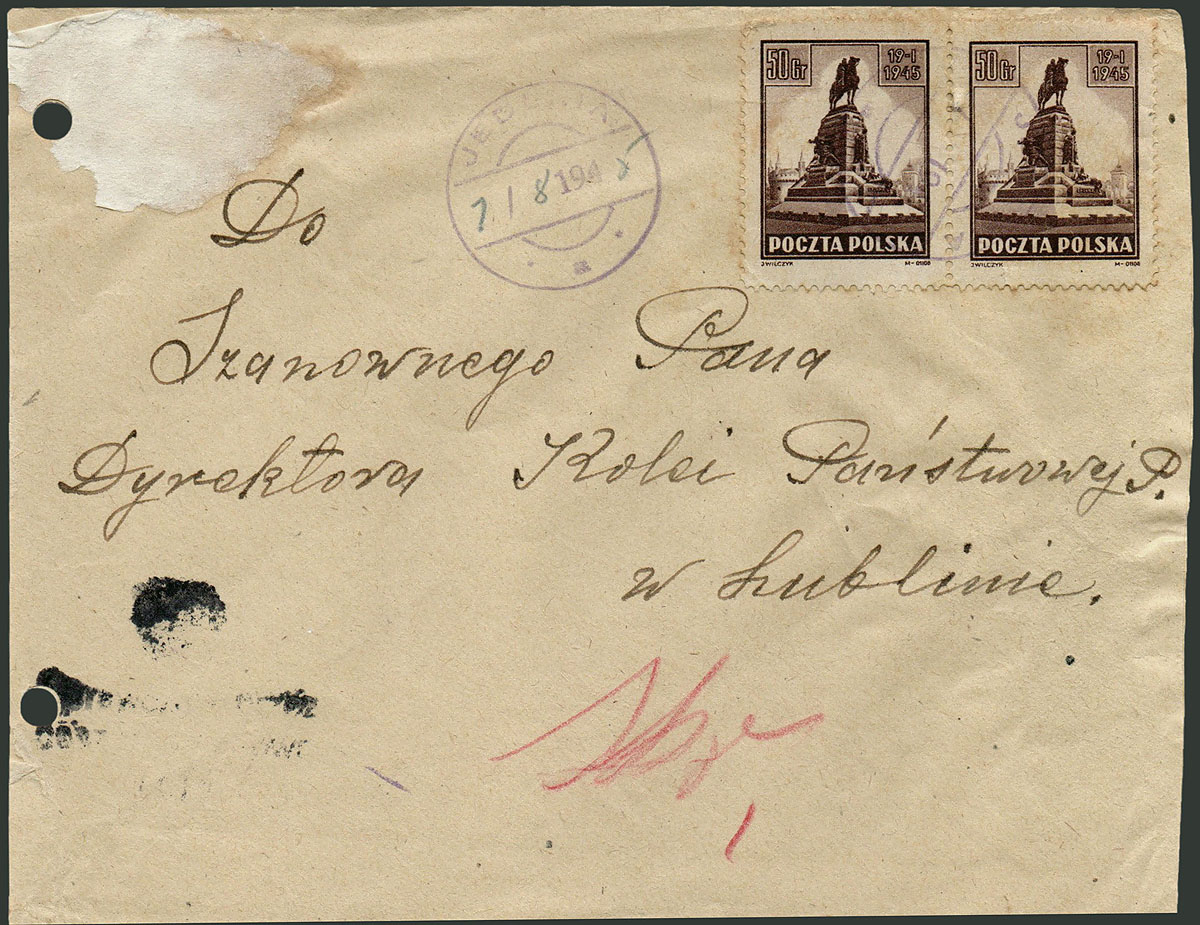 50 Gr
19-I
1945
POCZTA POLSKA
J.WILCZYK M-01108
50 Gr
19-I
1945
POCZTA POLSKA
J.WILCZYK M-01108
7. I 8 194 5
a
Do
Szanownego Pana
Dyrektora Kolei Państwowej P.
w Lublinie.